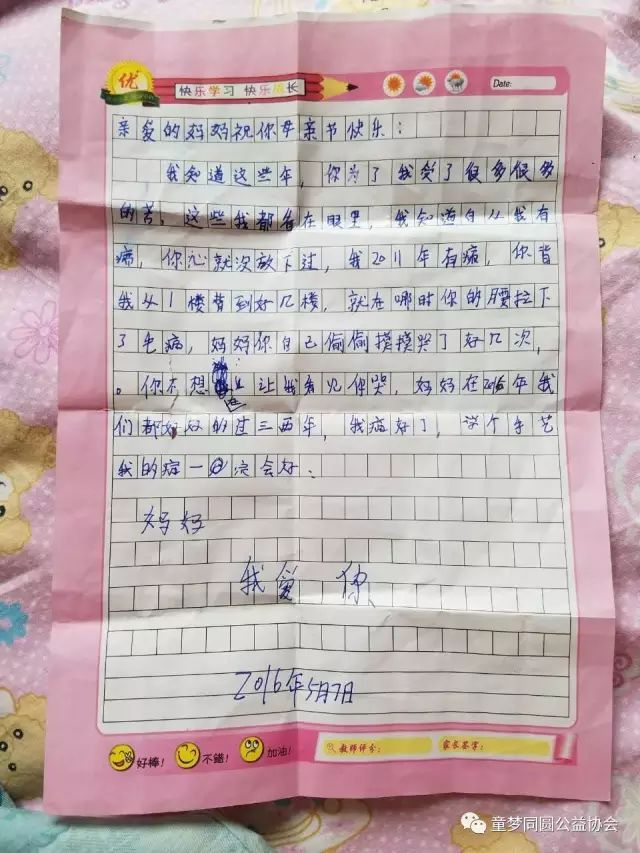 优
快乐学习 快乐成长
Date:
亲爱的妈妈祝你母亲节快乐：
我知道这些年，你为了我受了很多很多
的苦，这些我都看在眼里，我知道自从我有
病，你心就没放下过，我2011年有病，你背
我从1楼背到好几楼，就在哪时你的腰拉下
了毛病，妈妈你自己偷偷摸摸哭了好几次，
。你不想让我看见你哭，妈妈在2016年我
们都好好的过三两年，我病好了，学个手艺
我的病一定会好。
妈妈
我爱你
2016年5月7日
好棒！
不错！
加油！
教师评分：
家长签字：
童梦同圆公益协会